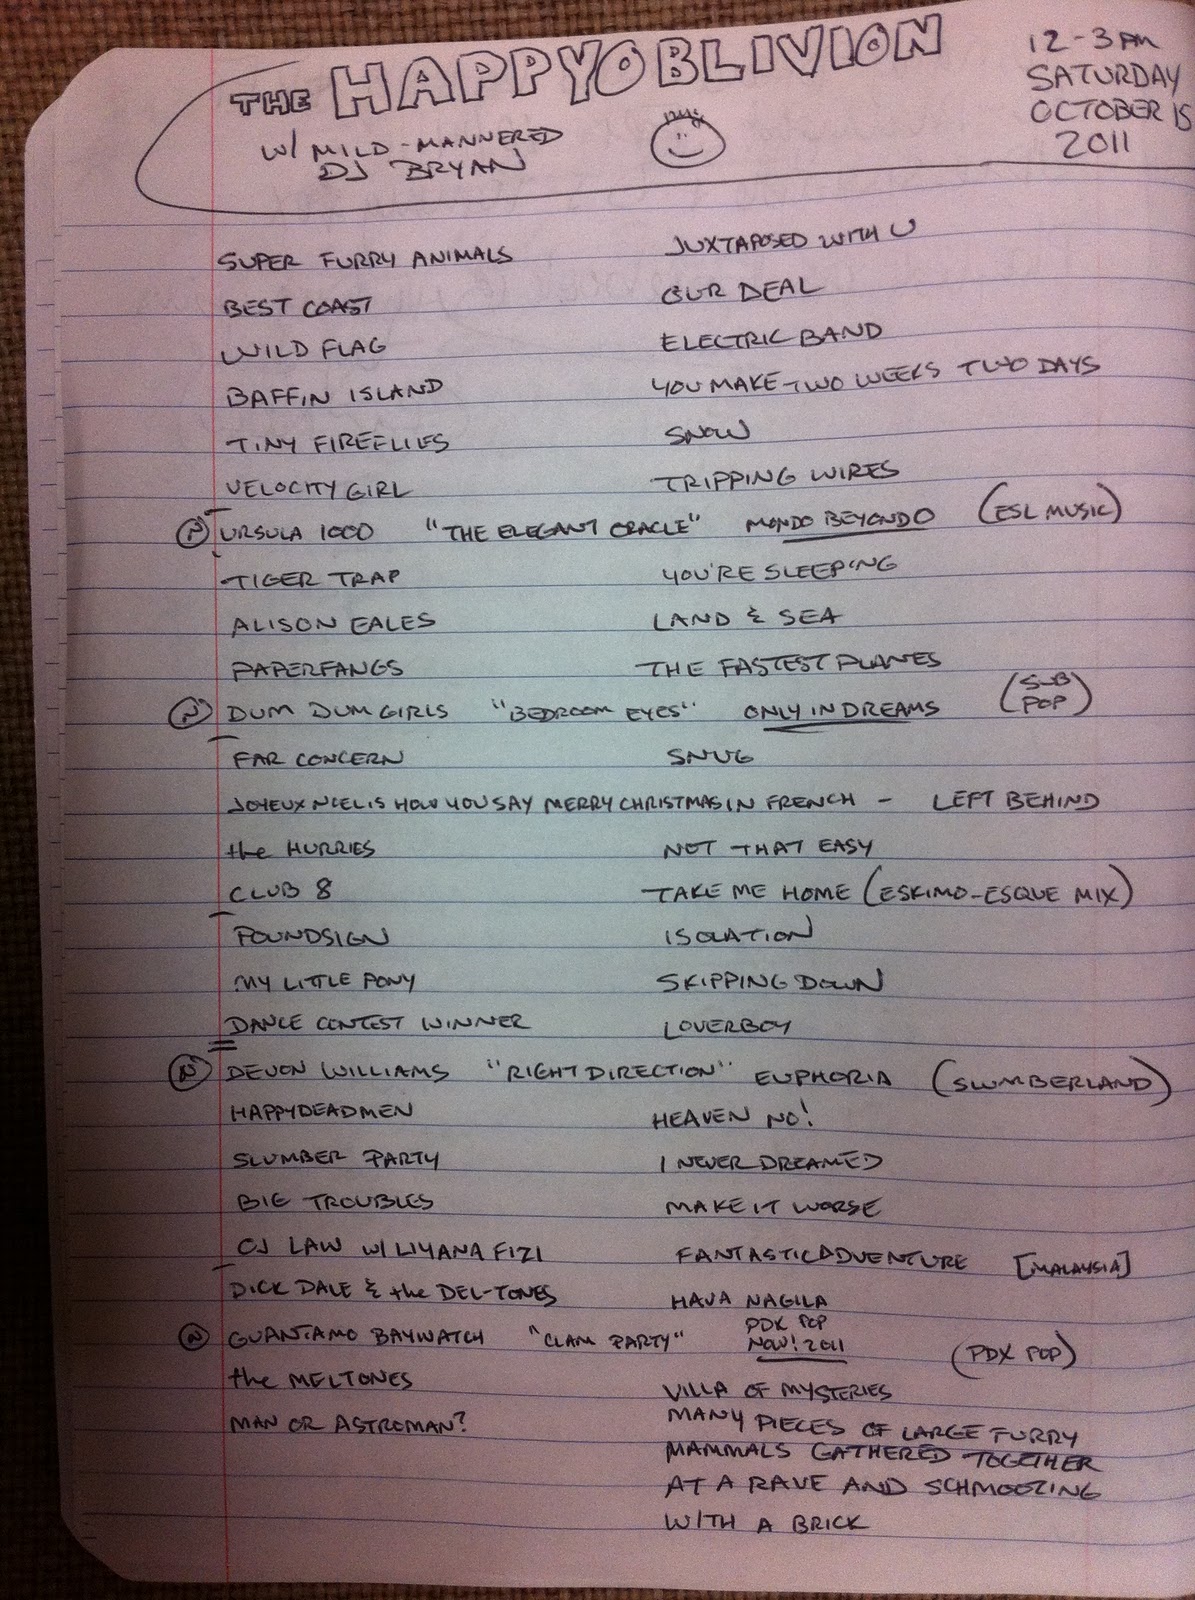 THE HAPPYOBLIVION
W/ MILD-MANNERED
DJ BRYAN
12-3 PM
SATURDAY
OCTOBER 15
2011
SUPER FURRY ANIMALS JUXTAPOSED WITH U
BEST COAST OUR DEAL
WILD FLAG ELECTRIC BAND
BAFFIN ISLAND YOU MAKE TWO WEEKS TWO DAYS
TINY FIREFLIES SNOW
VELOCITY GIRL TRIPPING WIRES
(N) URSULA 1000 "THE ELEGANT ORACLE" MONDO BEYONDO (ESL MUSIC)
TIGER TRAP YOU'RE SLEEPING
ALISON EALES LAND & SEA
PAPERFANGS THE FASTEST PLANES
(N) DUM DUM GIRLS "BEDROOM EYES" ONLY IN DREAMS (SUB POP)
FAR CONCERN SNUG
JOYEUX NOEL IS HOW YOU SAY MERRY CHRISTMAS IN FRENCH - LEFT BEHIND
the HURRIES NOT THAT EASY
CLUB 8 TAKE ME HOME (ESKIMO-ESQUE MIX)
POUNDSIGN ISOLATION
MY LITTLE PONY SKIPPING DOWN
DANCE CONTEST WINNER LOVERBOY
(N) DEVON WILLIAMS "RIGHT DIRECTION" EUPHORIA (SLUMBERLAND)
HAPPYDEADMEN HEAVEN NO!
SLUMBER PARTY I NEVER DREAMED
BIG TROUBLES MAKE IT WORSE
OJ LAW W/ LIYANA FIZI FANTASTIC ADVENTURE [MALAYSIA]
DICK DALE & the DEL-TONES HAVA NAGILA
(N) GUANTAMO BAYWATCH "CLAM PARTY" PDX POP NOW! 2011 (PDX POP)
the MELTONES VILLA OF MYSTERIES
MAN OR ASTROMAN? MANY PIECES OF LARGE FURRY
MAMMALS GATHERED TOGETHER
AT A RAVE AND SCHMOOZING
WITH A BRICK